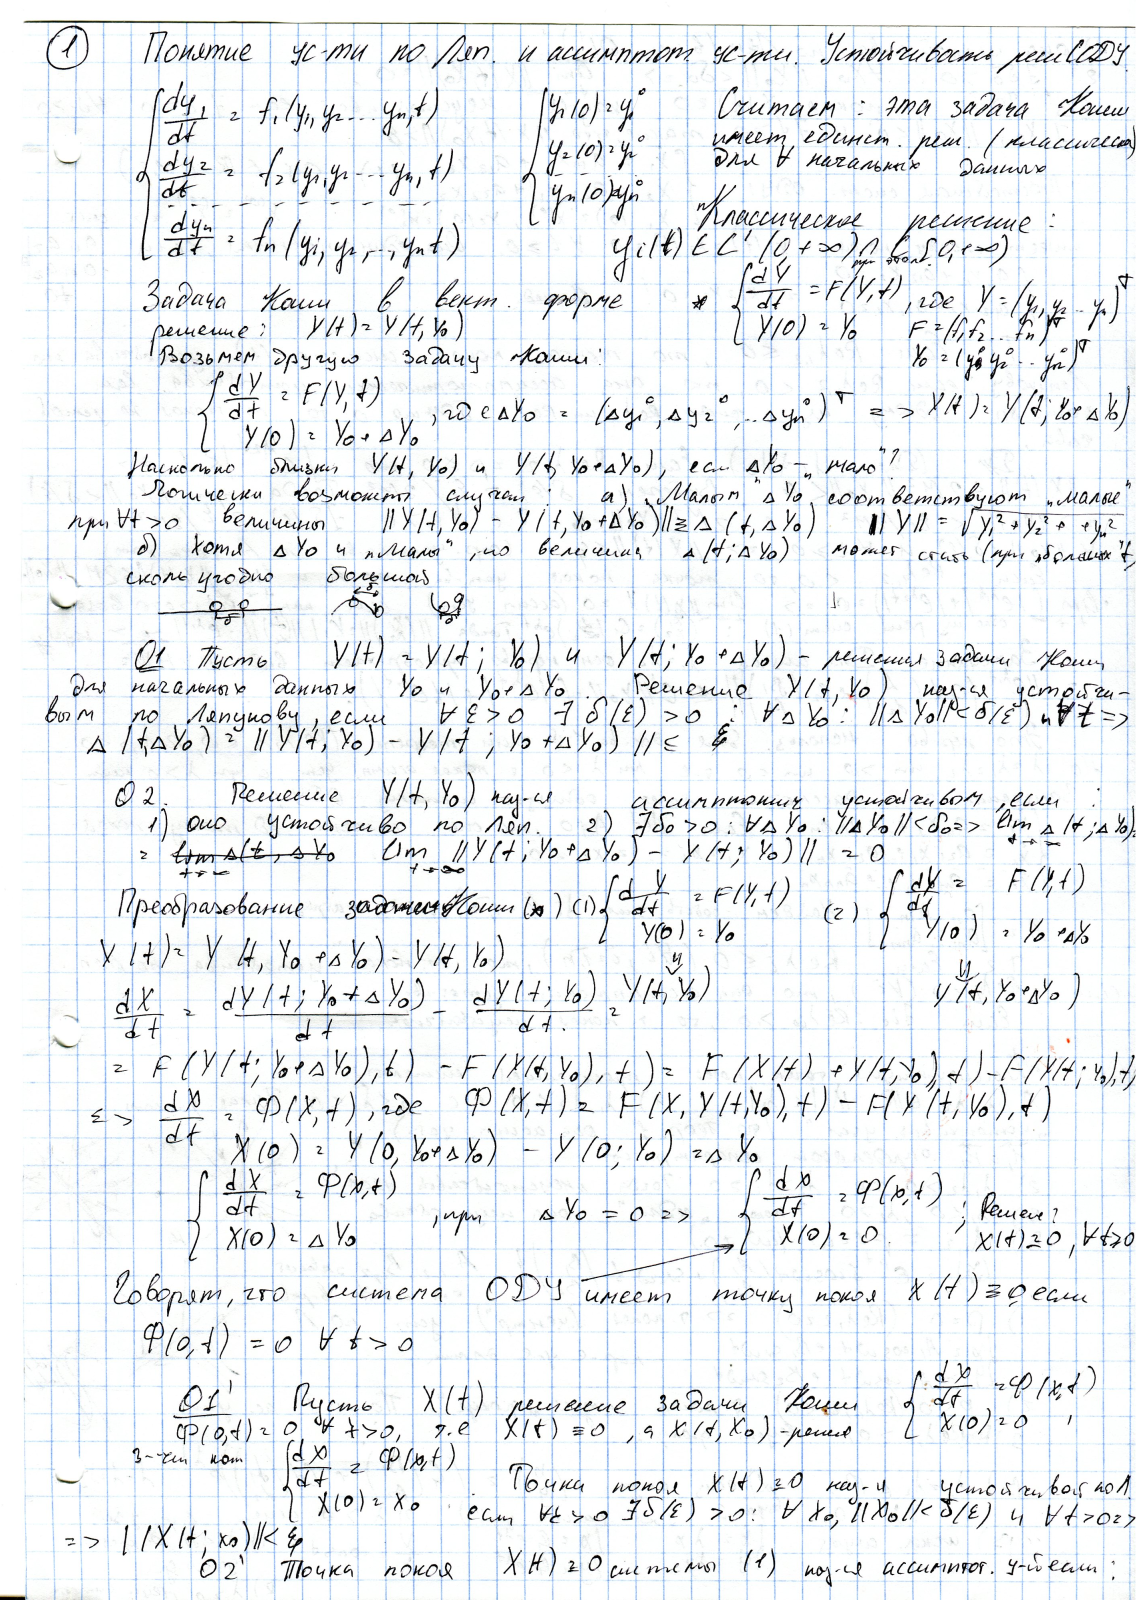 1 Понятие ус-ти по Ляп. и ассимптот. ус-ти. Устойчивость реш СОДУ.
{ dy₁/dt = f₁(y₁,y₂...yₙ,t) { y₁(0)=y₁⁰ Считаем: эта задача Коши
имеет единст. реш. (классическ)
dy₂/dt = f₂(y₁,y₂...yₙ,t) y₂(0)=y₂⁰ для ∀ начальных данных
dyₙ/dt = fₙ(y₁,y₂,..,yₙ t) yₙ(0)=yₙ⁰ "Классическое решение:
yᵢ(t) ∈ C¹(0,+∞)∩C[0,+∞)
Задача Коши в вект. форме * { dY/dt = F(Y,t), где Y=(y₁,y₂...yₙ)ᵀ
решение: Y(t)=Y(t,Y₀) Y(0)=Y₀ F=(f₁f₂...fₙ)ᵀ
Возьмем другую задачу Коши: Y₀=(y₁⁰ y₂⁰...yₙ⁰)ᵀ
{ dY/dt = F(Y,t)
Y(0)=Y₀+ΔY₀ , где ΔY₀ = (Δy₁⁰,Δy₂⁰,..Δyₙ⁰)ᵀ => Y(t)=Y(t;Y₀+ΔY₀)
Насколько близки Y(t,Y₀) и Y(t,Y₀+ΔY₀), если ΔY₀ - "мало"?
Логически возможны случаи: а) "Малым" ΔY₀ соответствуют "малые"
при ∀t>0 величины ||Y(t,Y₀) - Y(t,Y₀+ΔY₀)||≡Δ(t,ΔY₀) ||Y|| = √(y₁²+y₂²+ +yₙ²)
б) Хотя ΔY₀ и "малы", но величина Δ(t;ΔY₀) может стать (при "больших" t)
сколь угодно большой
О1 Пусть Y(t)=Y(t;Y₀) и Y(t;Y₀+ΔY₀) - решения задачи Коши
для начальных данных Y₀ и Y₀+ΔY₀. Решение Y(t,Y₀) наз-ся устойчи-
вым по Ляпунову, если ∀ε>0 ∃δ(ε)>0: ∀ΔY₀: ||ΔY₀||<δ(ε) и ∀t =>
Δ(t,ΔY₀) = ||Y(t;Y₀) - Y(t;Y₀+ΔY₀)|| ≤ ε
О2. Решение Y(t,Y₀) наз-ся ассимптотич устойчивом, если:
1) оно устойчиво по Ляп. 2) ∃δ₀>0: ∀ΔY₀: ||ΔY₀||<δ₀ => lim t→∞ Δ(t;ΔY₀)=
= lim Δ(t,ΔY₀ t→∞ lim t→∞ ||Y(t;Y₀+ΔY₀) - Y(t;Y₀)|| = 0
Преобразование задачи Коши (*) (1) { dY/dt = F(Y,t) Y(0)=Y₀ (2) { dY/dt = F(Y,t) Y(0) = Y₀+ΔY₀
X(t)= Y(t,Y₀+ΔY₀) - Y(t,Y₀)
dX/dt = dY(t;Y₀+ΔY₀)/dt - dY(t;Y₀)/dt = Y(t,Y₀) Y(t,Y₀+ΔY₀)
= F(Y(t;Y₀+ΔY₀),t) - F(Y(t,Y₀),t) = F(X(t)+Y(t,Y₀),t) - F(Y(t;Y₀),t)
=> dX/dt = Φ(X,t), где Φ(X,t) = F(X,Y(t,Y₀),t) - F(Y(t,Y₀),t)
X(0) = Y(0,Y₀+ΔY₀) - Y(0;Y₀) = ΔY₀
{ dX/dt = Φ(x,t) X(0)=ΔY₀ , при ΔY₀=0 => { dX/dt = Φ(x,t) X(0)=0 ; Решен: X(t)≡0, ∀t>0
Говорят, что система ОДУ имеет точку покоя X(t)≡0, если
Φ(0,t)=0 ∀t>0
О1' Пусть X(t) решение задачи Коши { dX/dt = Φ(x,t) X(0)=0 ,
Φ(0,t)=0, ∀t>0, т.е X(t)≡0, а X(t,X₀) - решен
з-чи кош { dX/dt = Φ(x,t) X(0)=X₀ Точка покоя X(t)≡0 наз-ся устойчивой по Л.
если ∀ε>0 ∃δ(ε)>0: ∀X₀, ||X₀||<δ(ε) и ∀t>0 =>
=> ||X(t;x₀)||<ε
О2' Точка покоя X(t)≡0 системы (1) наз-ся ассимптот. у-й если: